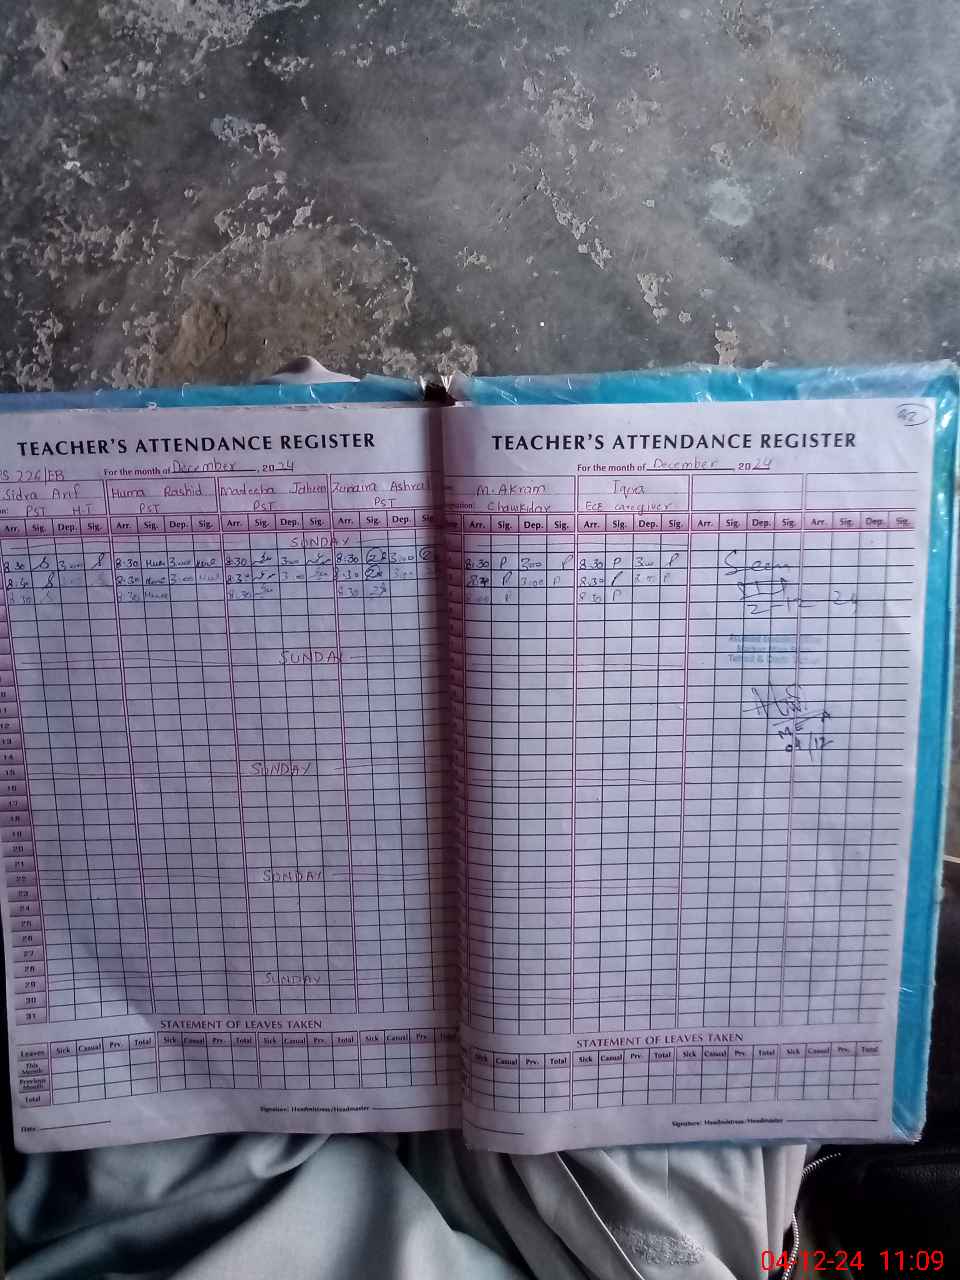 TEACHER'S ATTENDANCE REGISTER
PS 226/EB For the month of December, 2024
Sidra Arif Huma Rashid Madeeha Jabeen Zunaira Ashraf
PST H.T PST PST PST
Arr. Sig. Dep. Sig. Arr. Sig. Dep. Sig. Arr. Sig. Dep. Sig. Arr. Sig. Dep. Sig.
SUNDAY
8:30 3:00 8:30 Huma 3:00 8:30 3:00 8:30 3:00
8:30 8:30 3:00 8:30 3:00 8:30 3:00
8:30 8:30 8:30 8:30
SUNDAY
11
12
13
14
15 SUNDAY
16
17
18
19
20
21
22 SUNDAY
23
24
25
26
27
28
29 SUNDAY
30
31
STATEMENT OF LEAVES TAKEN
Leaves Sick Casual Prv. Total Sick Casual Prv. Total Sick Casual Prv. Total Sick Casual Prv.
This Month
Previous Month
Total
Signature: Headmistress/Headmaster
Date
42
TEACHER'S ATTENDANCE REGISTER
For the month of December 2024
M. Akram Iqra
Chawkidar ECE caregiver
Arr. Sig. Dep. Sig. Arr. Sig. Dep. Sig. Arr. Sig. Dep. Sig. Arr. Sig. Dep. Sig.
8:30 P 3:00 P 8:30 P 3:00 P Seen
8:30 P 3:00 P 8:30 P 3:00 P
P 8:30 P 2 12 24
MEA
04/12
STATEMENT OF LEAVES TAKEN
Sick Casual Prv. Total Sick Casual Prv. Total Sick Casual Prv. Total Sick Casual Prv. Total
Signature: Headmistress/Headmaster
04-12-24 11:09